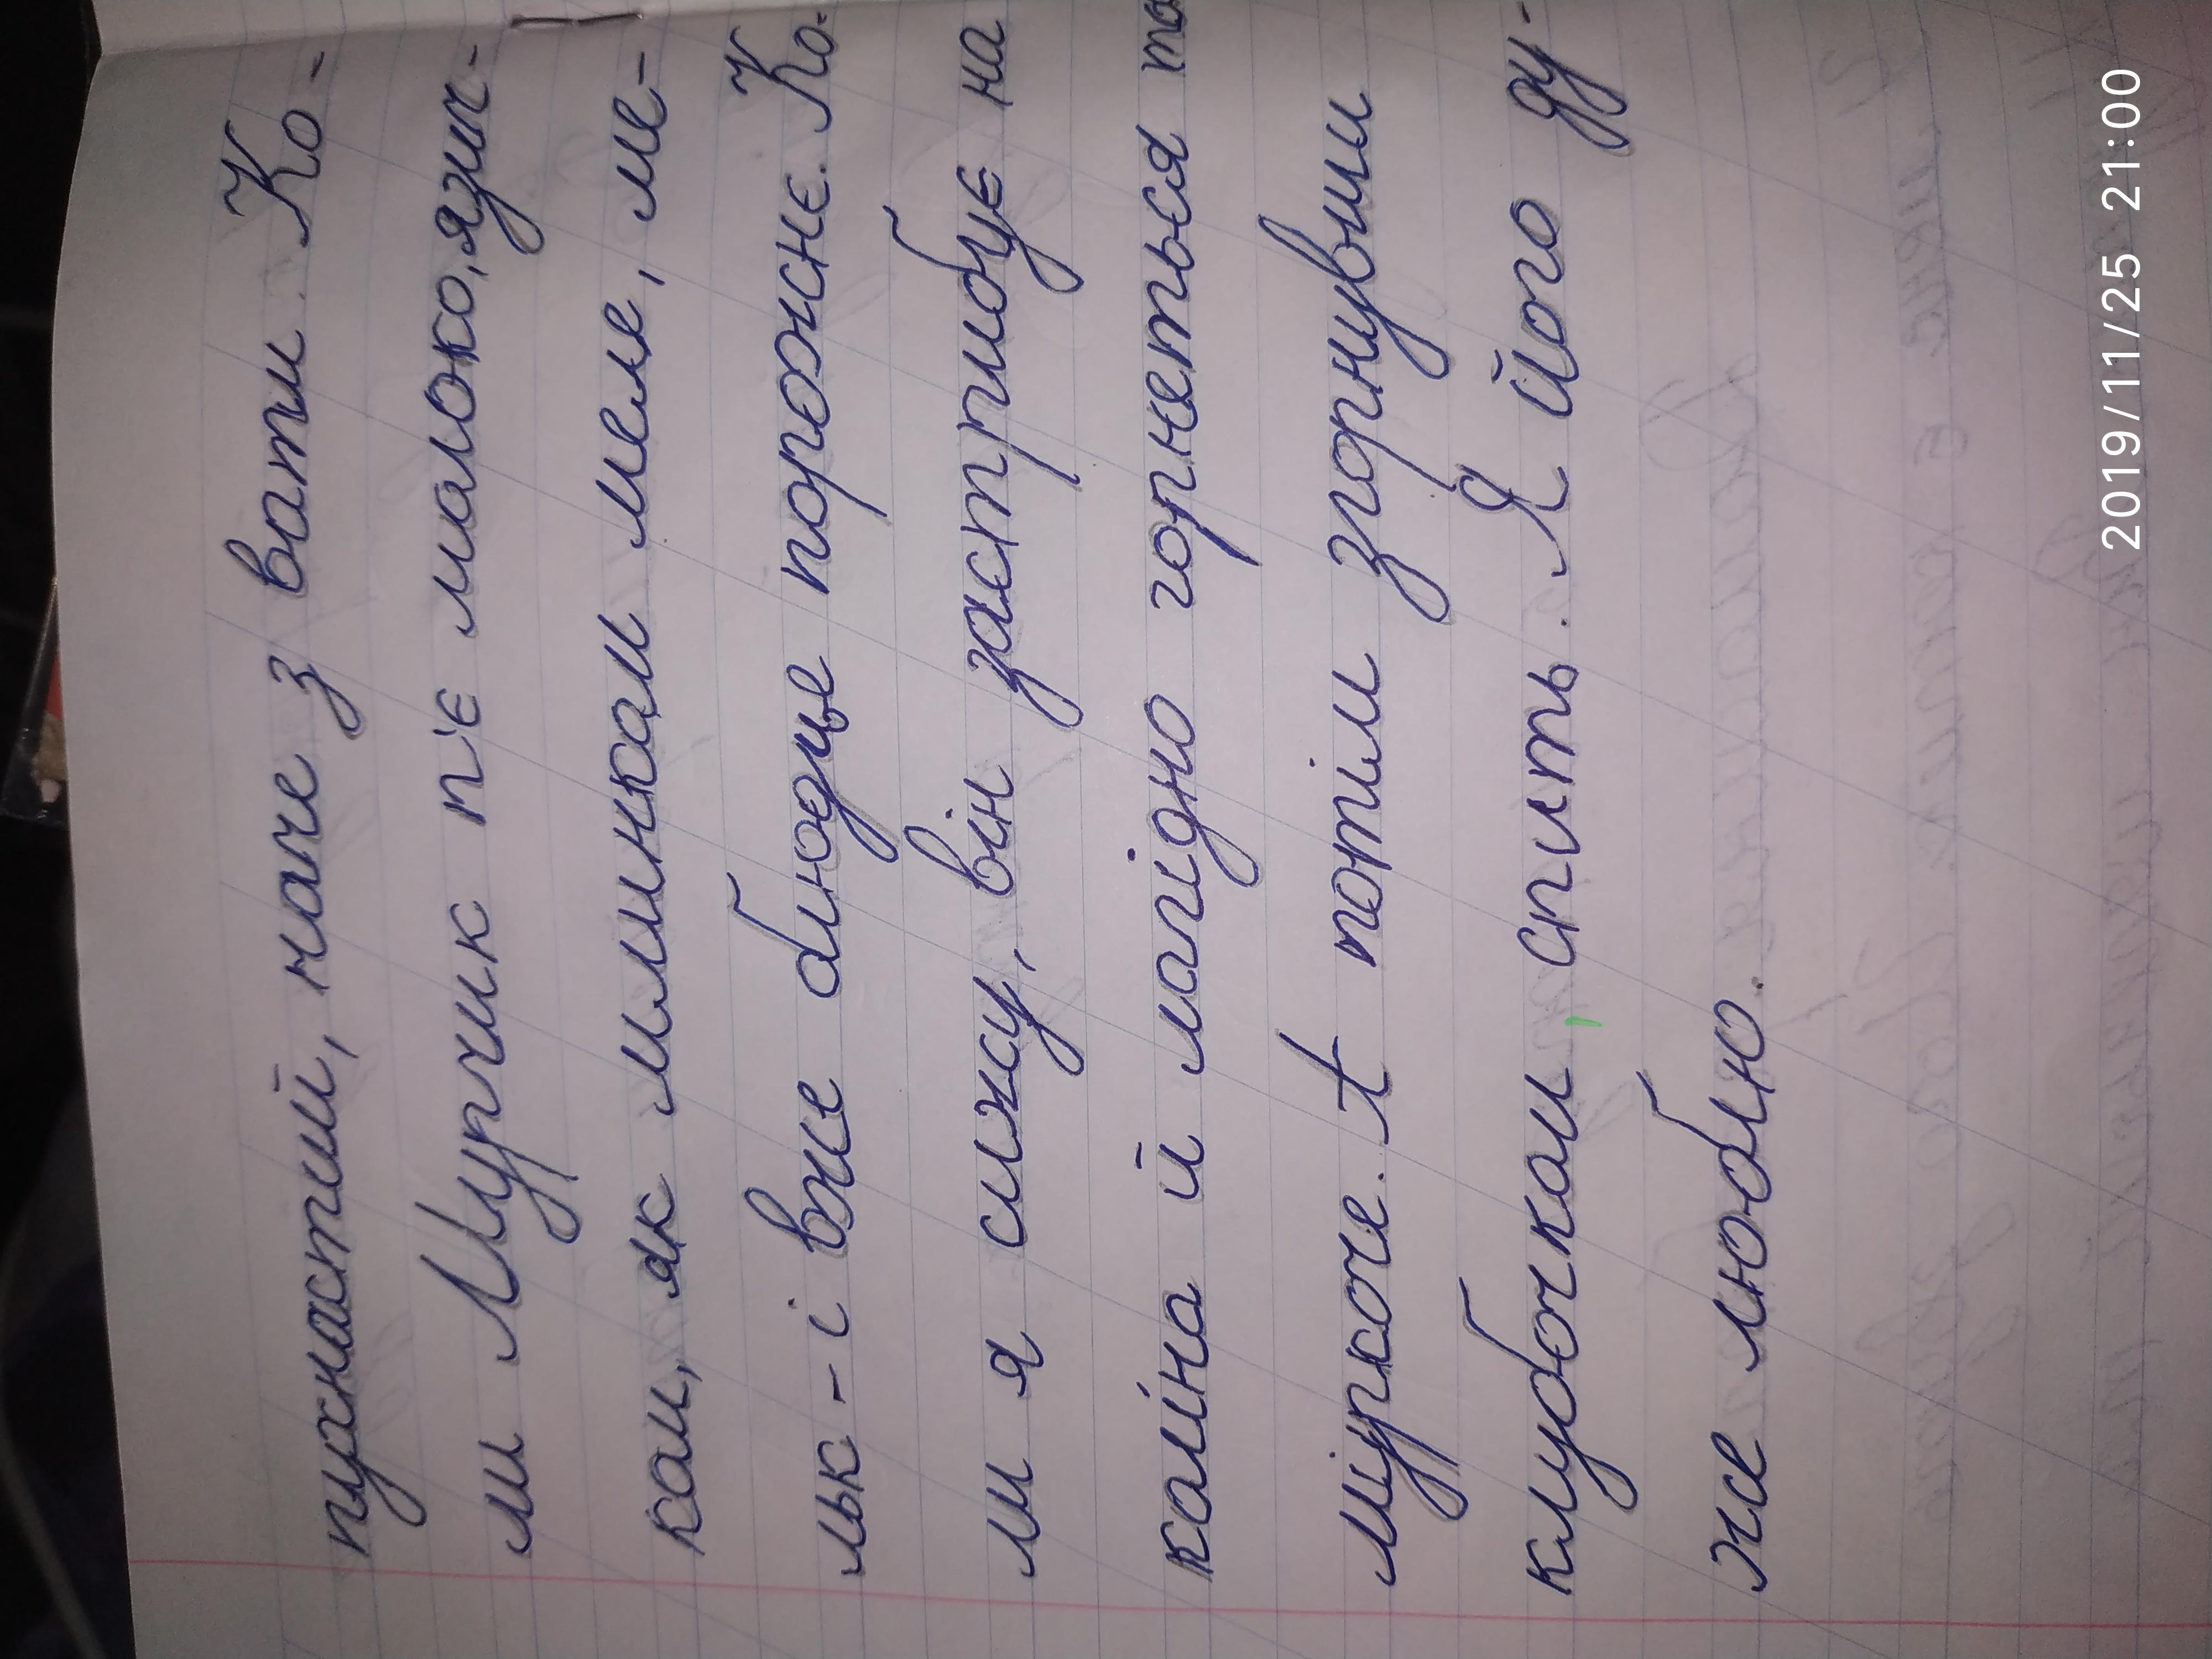 пухнастий, наче з вати. Ко-
ли Мурчик п'є малоко, язич-
ком, як млинком меле, ме-
льк - і вже блюдце порожнє. Ко-
ли я сижу, він застрибує на
коліна й лагідно горнеться та
муркоче. А потім згорнувши
клубочком, спить. Я його ду-
же люблю.
2019/11/25 21:00